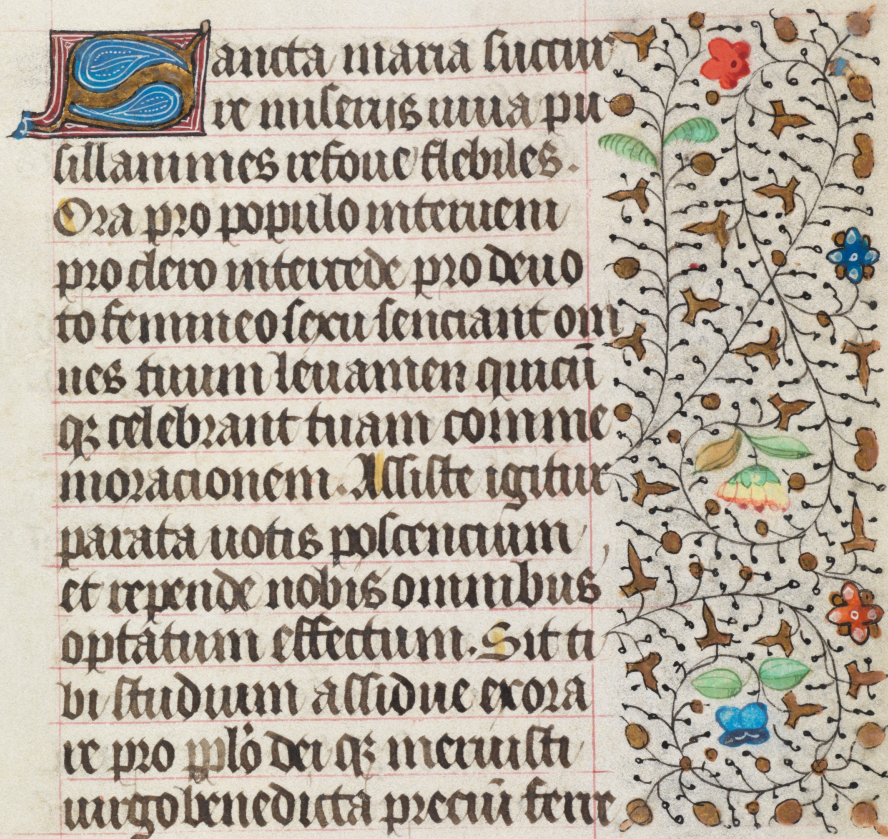 Sancta maria succur
re miseris iuua pu
sillanimes refoue flebiles.
Ora pro populo interueni
pro clero intercede pro deuo
to femineo sexu senciant om
nes tuum leuamen quicū
qꝫ celebrant tuam comme
moracionem. Assiste igitur
parata uotis poscencium
et repende nobis omnibus
optatum effectum. Sit ti
bi studium assidue exora
re pro pplō dei qꝫ meruisti
uirgo benedicta preciū ferre